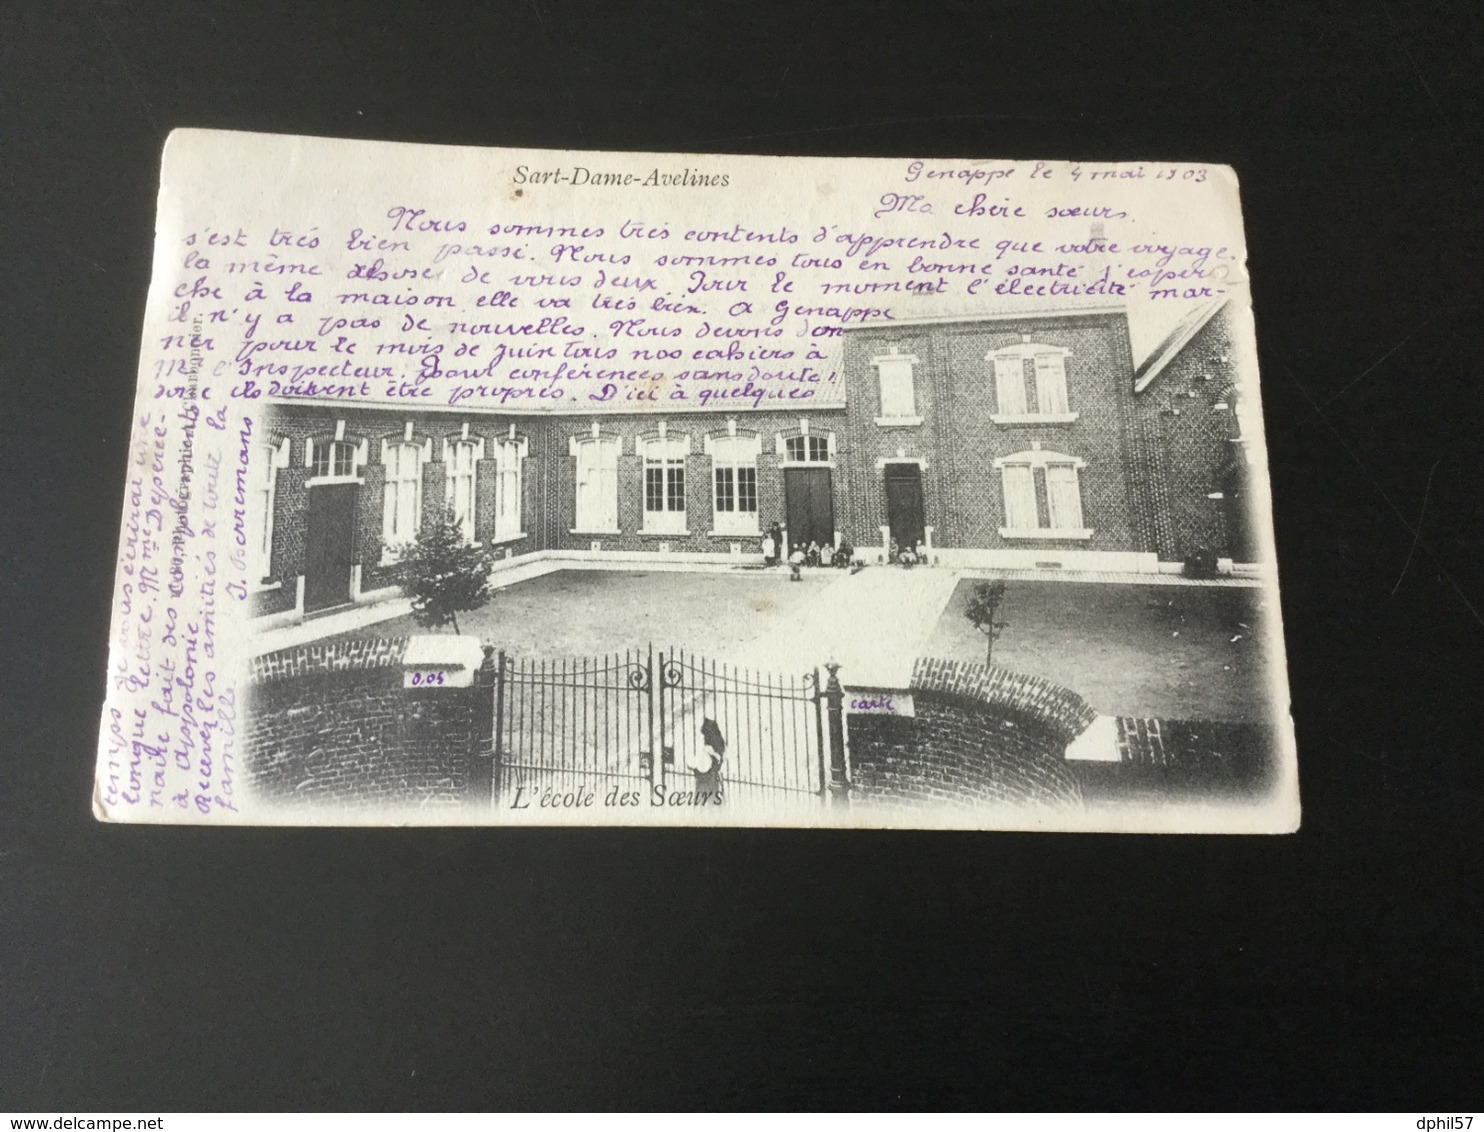 Sart-Dame-Avelines
Genappe le 4 mai 1903
Ma chère sœurs.
Nous sommes très contents d'apprendre que votre voyage
s'est très bien passé. Nous sommes tous en bonne santé j'espère
la même chose de vous deux. Pour le moment l'électricité mar-
che à la maison elle va très bien. A Genappe
il n'y a pas de nouvelles. Nous devons don
ner pour le mois de juin tous nos cahiers à
Mr l'Inspecteur. pour conférences sans doute!!
donc ils doivent être propres. D'ici à quelques
temps je vous écrirai une
longue lettre. Mme
fait des
à appolonie
Recevez les amitiés de toute la
famille
J. Berremans
0,05
carte
L'école des Sœurs
delcampe.net
dphil57